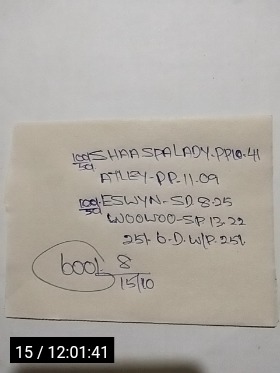 100/50 SHAASPALADY-PP10-41
ATTLEY-PP-11-09
100/50 ESWYN-SD 8-25
WOOWOO-SP 13-22
25/- 6-D-W/P-25/-
600/- 8
15/10
15 / 12:01:41